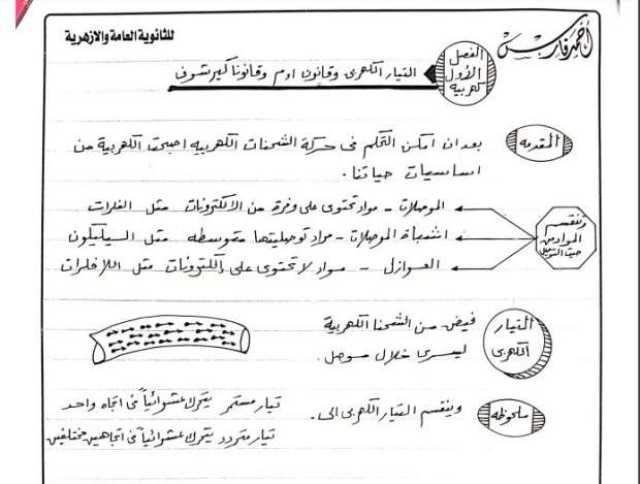 أحمد فارس
للثانوية العامة والازهرية
الفصل الأول كهربية
التيار الكهربى وقانون اوم وقانونا كيرشوف
المقدمه
بعد ان امكن التحكم فى حركة الشحنات الكهربيه اصبحت الكهربية من
اساسيات حياتنا.
وتنقسم المواد من حيث التوصيل
الموصلات - مواد تحتوى على وفرة من الالكترونات مثل الفلزات
اشباة الموصلات - مواد توصيليتها متوسطه مثل السيليكون
العوازل - مواد لا تحتوى على إلكترونات مثل اللافلزات
التيار الكهربى
فيض من الشحنا الكهربية
ليسرى خلال موصل.
ملحوظه
وينقسم التيار الكهربى الى.
تيار مستمر يتحرك عشوائياً فى اتجاه واحد
تيار متردد يتحرك عشوائياً فى اتجاهين مختلفين